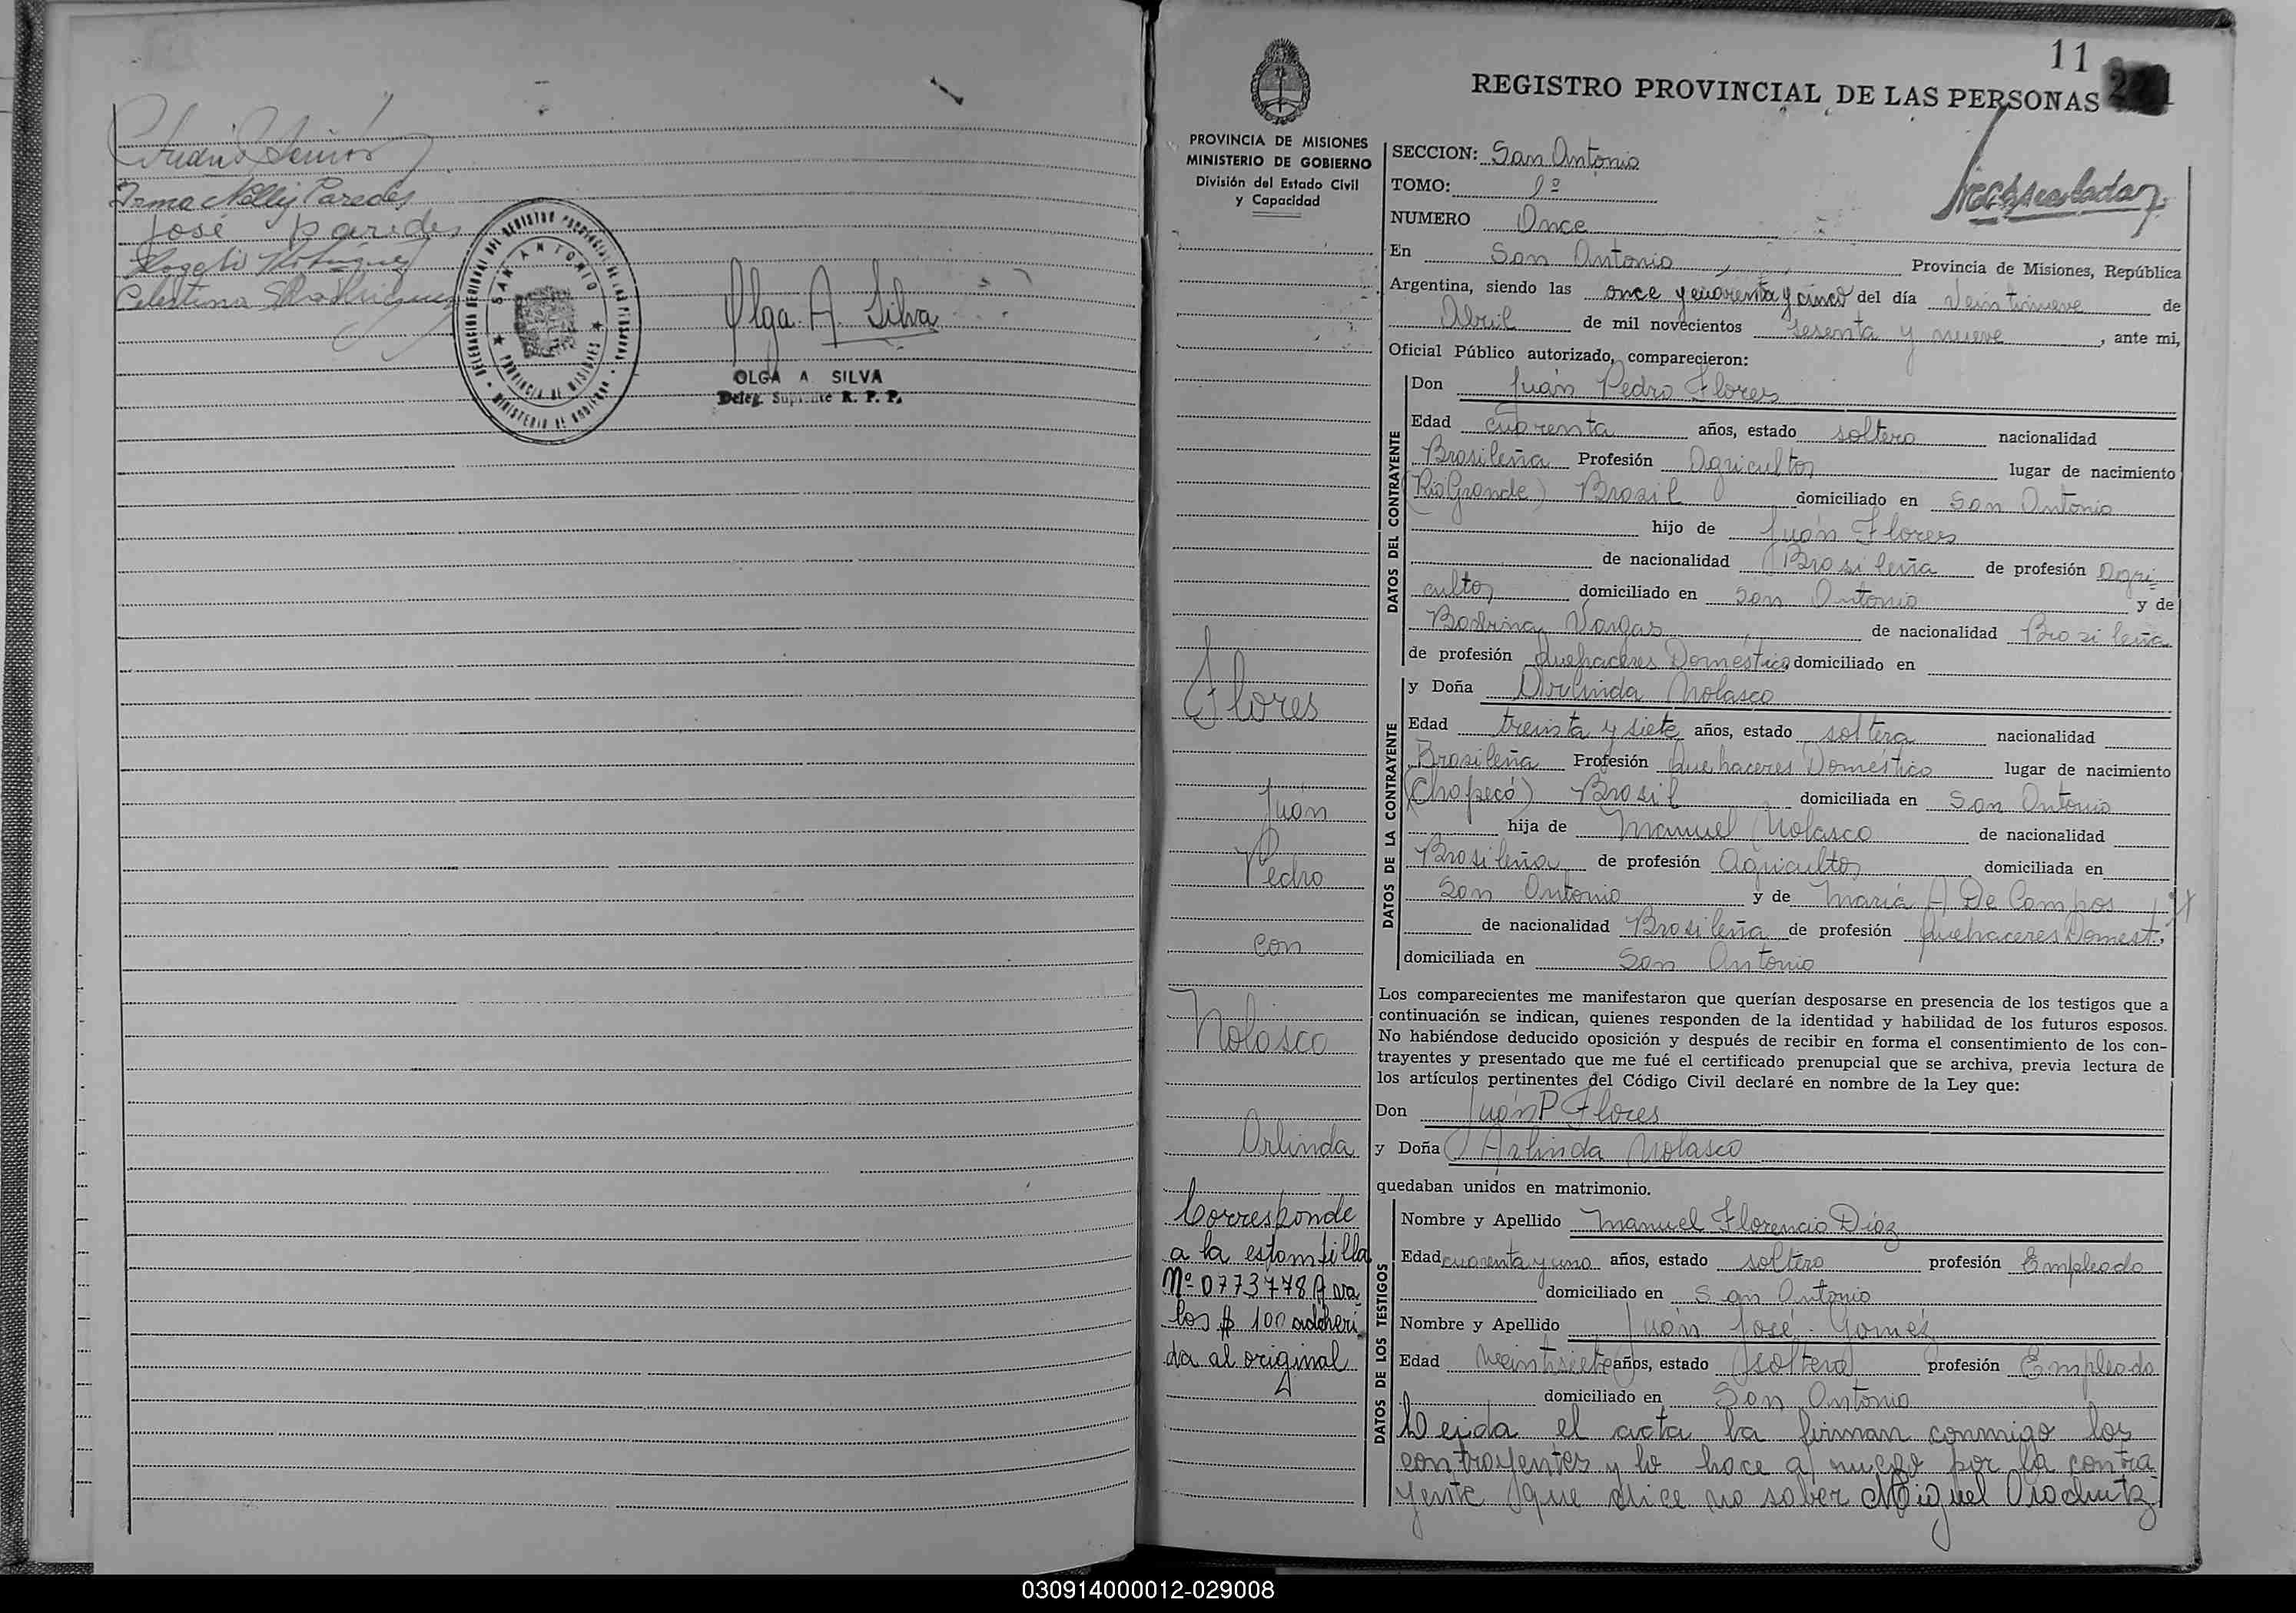 Irma Nelly Paredes
José paredes
Rogelio Rodriguez
Celestina S
DELEGACIÓN SECCIONAL DEL REGISTRO PROVINCIAL DE LAS PERSONAS
SAN ANTONIO
PROVINCIA DE MISIONES
MINISTERIO DE GOBIERNO
Olga A. Silva
OLGA A SILVA
Deleg. Suplente R. P. P.
11
REGISTRO PROVINCIAL DE LAS PERSONAS
PROVINCIA DE MISIONES
MINISTERIO DE GOBIERNO
División del Estado Civil
y Capacidad
SECCION: San Antonio
TOMO: 1º
NUMERO Once
En San Antonio Provincia de Misiones, República
Argentina, siendo las once y cuarenta y cinco del día Veintinueve de
Abril de mil novecientos sesenta y nueve, ante mi,
Oficial Público autorizado, comparecieron:
DATOS DEL CONTRAYENTE
Don Juán Pedro Flores
Edad cuarenta años, estado soltero nacionalidad
Brasileña Profesión Agricultor lugar de nacimiento
(Rio Grande) Brasil domiciliado en San Antonio
hijo de Juán Flores
de nacionalidad Brasileña de profesión Agri
cultor domiciliado en San Antonio y de
Vargas de nacionalidad Brasileña
de profesión Quehaceres Doméstico domiciliado en
DATOS DE LA CONTRAYENTE
y Doña Orlinda Nolasco
Edad treinta y siete años, estado soltera nacionalidad
Brasileña Profesión Quehaceres Doméstico lugar de nacimiento
(Chapecó) Brasil domiciliada en San Antonio
hija de Manuel Nolasco de nacionalidad
Brasileña de profesión Agricultor domiciliada en
San Antonio y de María A De Campos
de nacionalidad Brasileña de profesión Quehaceres Domest.
domiciliada en San Antonio
Los comparecientes me manifestaron que querían desposarse en presencia de los testigos que a
continuación se indican, quienes responden de la identidad y habilidad de los futuros esposos.
No habiéndose deducido oposición y después de recibir en forma el consentimiento de los con-
trayentes y presentado que me fué el certificado prenupcial que se archiva, previa lectura de
los artículos pertinentes del Código Civil declaré en nombre de la Ley que:
Don Juán P Flores
y Doña Arlinda Nolasco
quedaban unidos en matrimonio.
DATOS DE LOS TESTIGOS
Nombre y Apellido Manuel Florencio Díaz
Edad cuarenta y uno años, estado soltero profesión Empleado
domiciliado en San Antonio
Nombre y Apellido Juán José Gomez
Edad Veintisiete años, estado soltero profesión Empleado
domiciliado en San Antonio
Leida el acta la firman conmigo los
contrayentes y lo hace a ruego por la contra
yente que dice no saber Miguel
Flores
Juán
Pedro
con
Nolasco
Orlinda
Corresponde
a la estampilla
Nº 0773778 A va
los $ 100 adheri
da al original
030914000012-029008